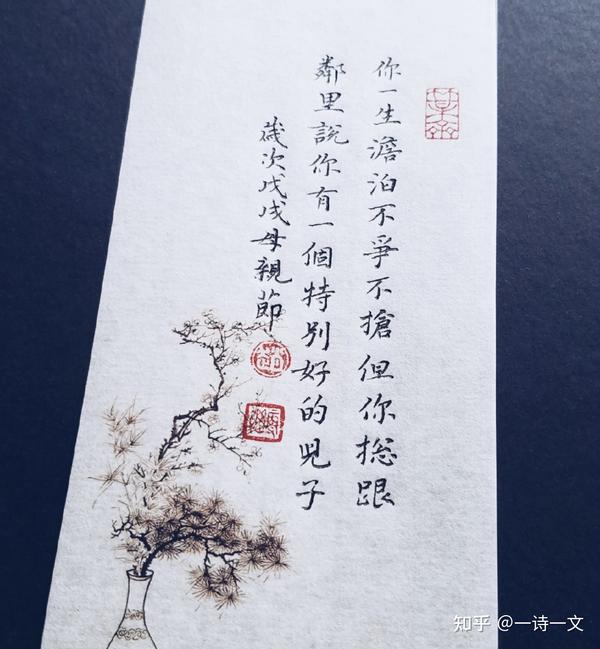 你一生澹泊不爭不搶但你總跟
鄰里說你有一個特別好的兒子
歲次戊戌母親節
知乎 @一诗一文